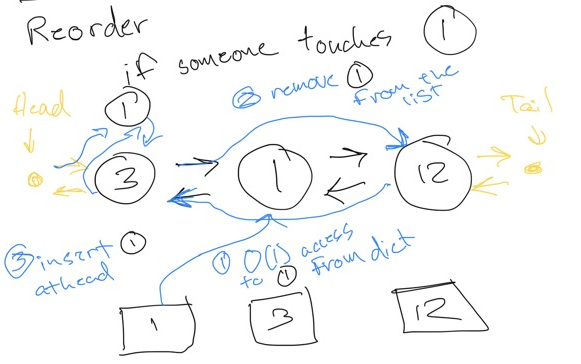 Reorder
if someone touches 1
② remove ① from the list
Head
Tail
1
3
1
12
③ insert ① at head
① O(1) access to ① from dict
1
3
12